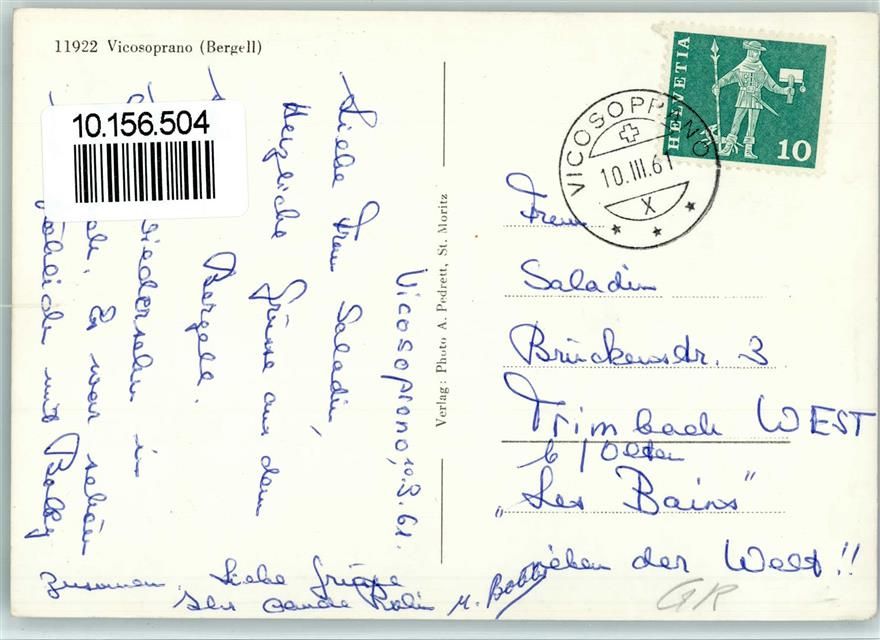 11922 Vicosoprano (Bergell)
10.156.504
HELVETIA
10
VICOSOPRANO
10.III.61
X
Verlag: Photo A. Pedrett, St. Moritz
Vicosoprano, 10.3.61.
Liebe Frau Saladin,
Herzliche Grüsse aus dem
Bergell.
Wiedersehen in
Es war schön
fröhlich mit Bobby
zusammen. Liebe Grüsse
M. Bobby
Frau
Saladin
Brückenstr. 3
Trimbach WEST
b/Olten
„Les Bains"
neben der Welt!!
GR